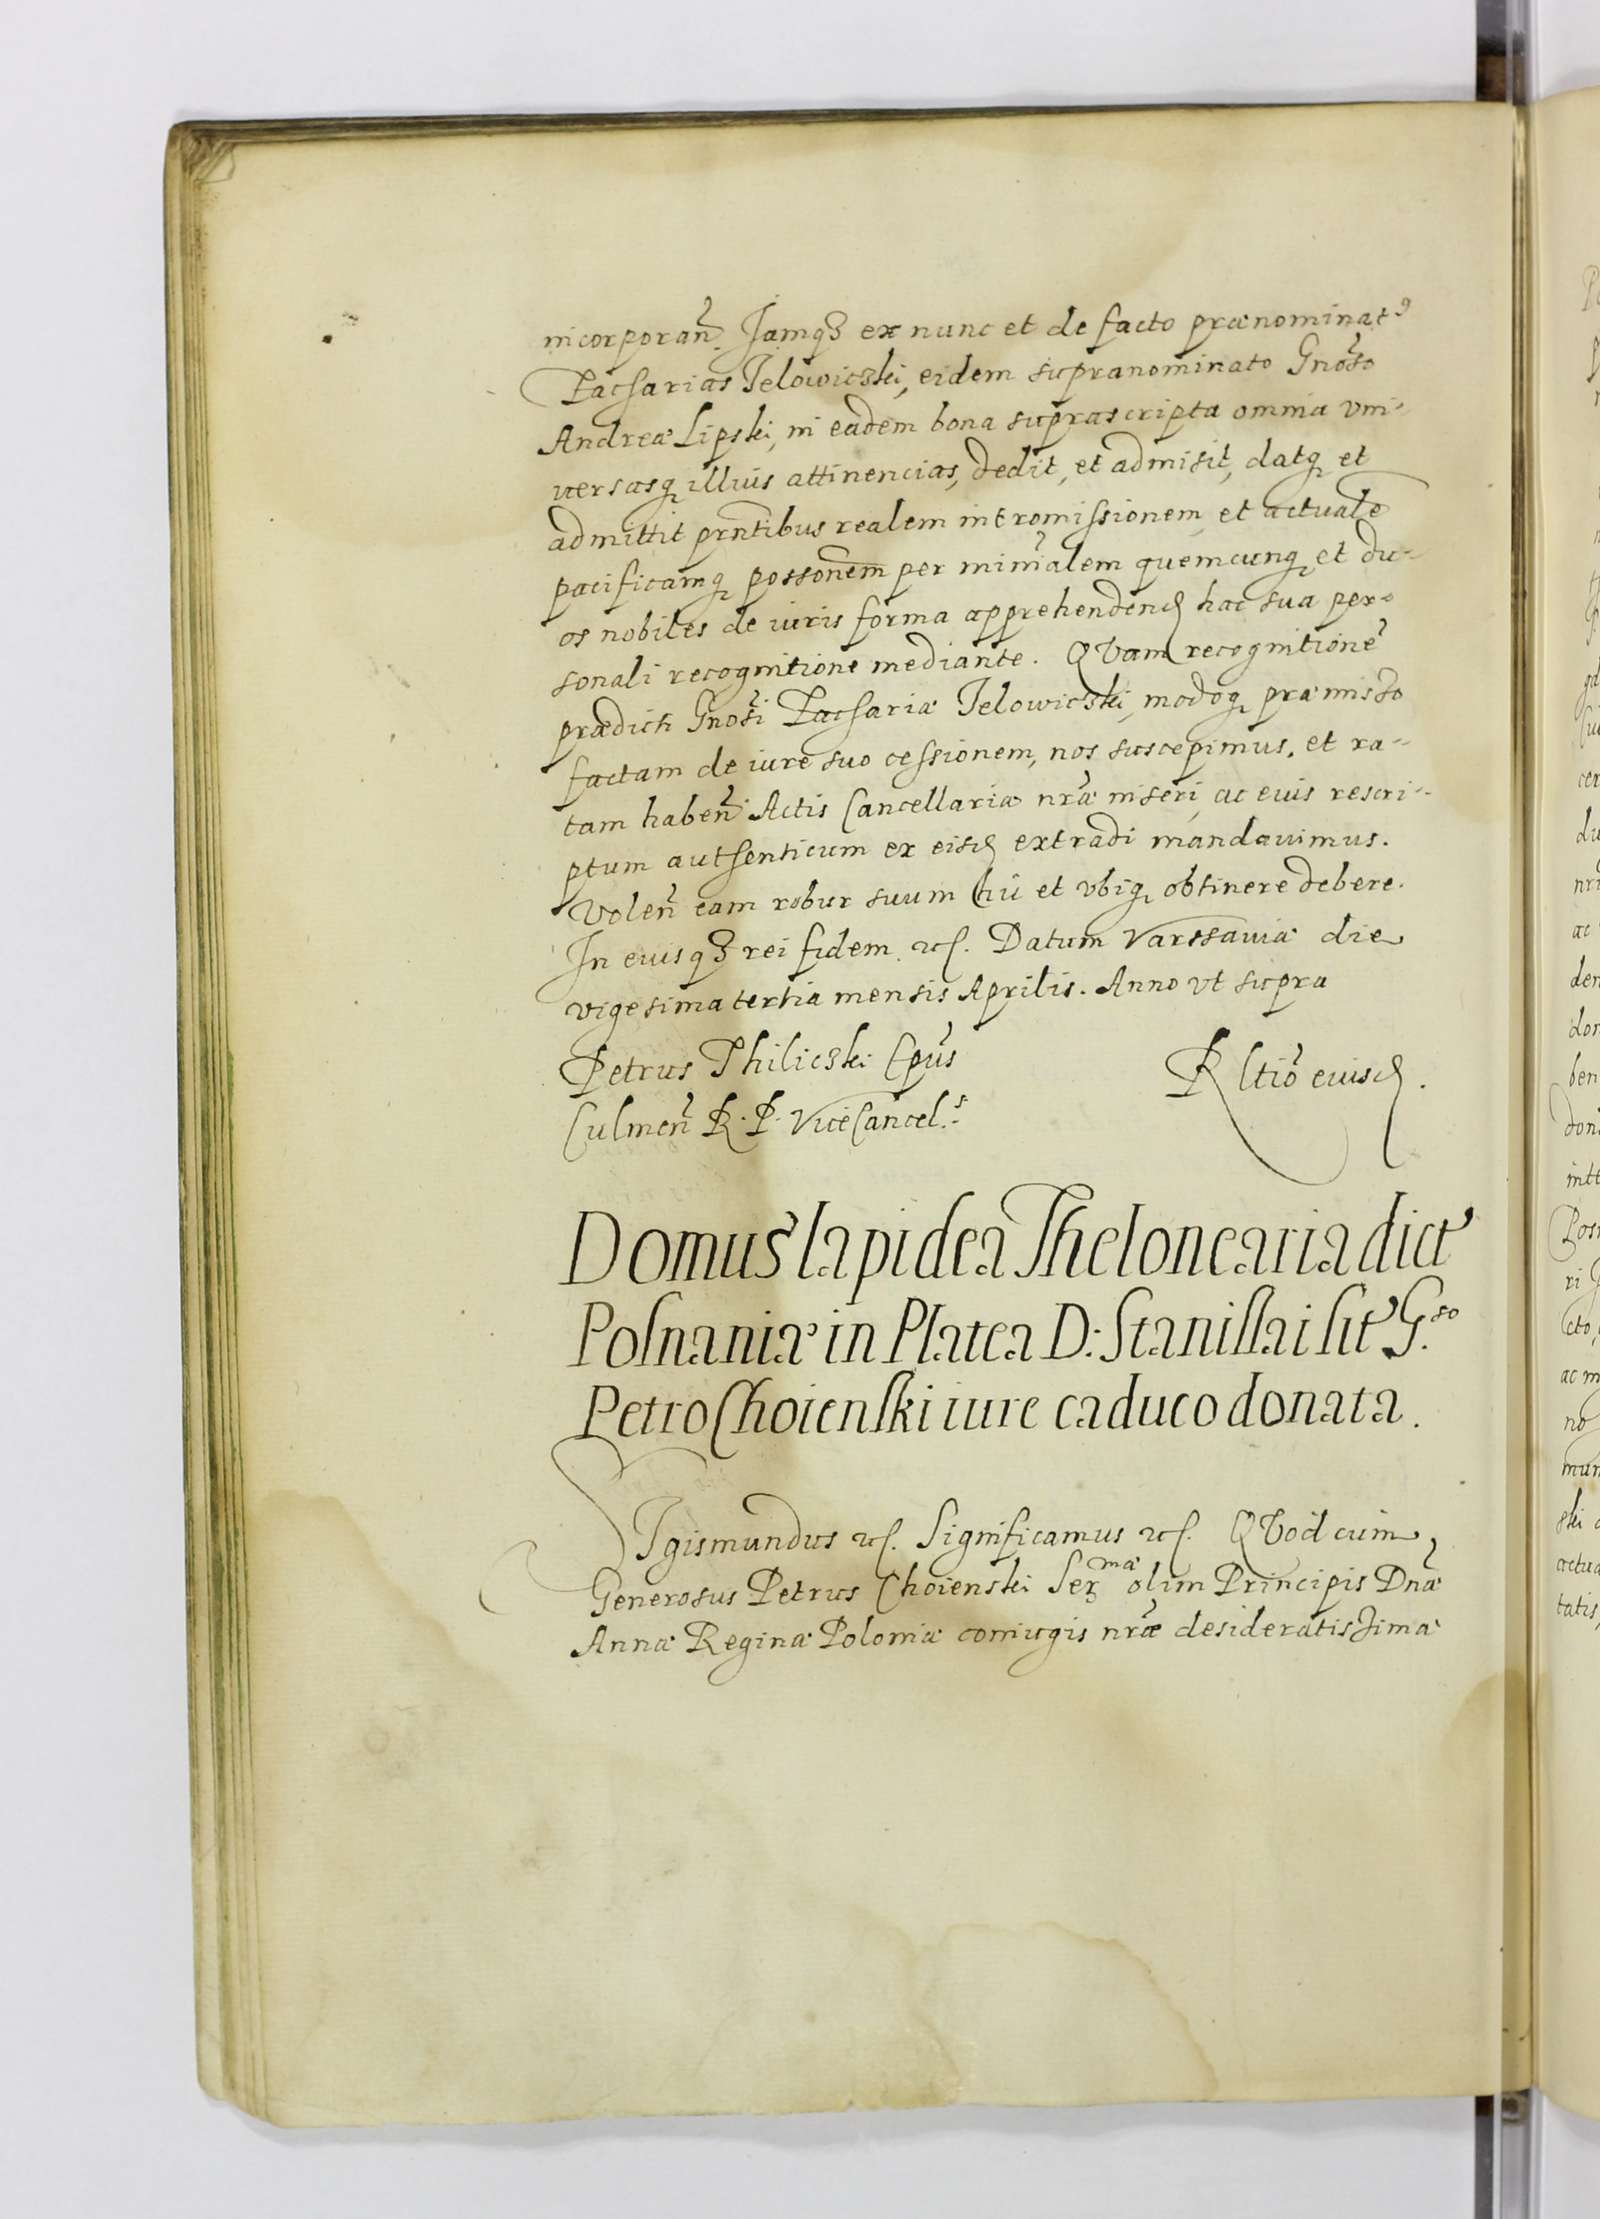 incorporan̄. Jamqȝ ex nunc et de facto prænominatꝰ
Zacharias Jelowiczki, eidem supranominato Gnoso
Andreæ Lipski, in eadem bona suprascripta omnia vni-
uersasq illius attinencias, dedit, et admisit, datq et
admittit prntibus realem intromissionem et actualē
pacificamq possonem per minialem quemcunq et du-
os nobiles de iuris forma apprehenden̄ hac sua per-
sonali recognitione mediante. QVam recognitionē
prædicti Gnosi Zachariæ Jelowiczki, modoq præmisso
factam de iure suo cessionem, nos suscepimus, et ra-
tam haben̄ Actis Cancellariæ nræ inseri, ac eius rescri-
ptum authenticum ex eisd extradi mandauimus.
Volen̄ eam robur suum hic et vbiq obtinere debere.
In euisqȝ rei fidem etc. Datum Varssauiæ die
vigesima tertia mensis Aprilis. Anno vt supra
Petrus Thiliczki Epus
Culmen̄ R. P. ViceCancels
R ltio eiusd.
Domus lapidea Thelonearia dict
Posnaniæ in Platea D: Stanislai sit G.so
Petro Choienski iure caduco donata.
SIgismundus etc. Significamus etc. QVod cum
Generosus Petrus Choienski Sermæ olim Principis Dnæ
Annæ Reginæ Poloniæ coniugis nræ desideratissimæ